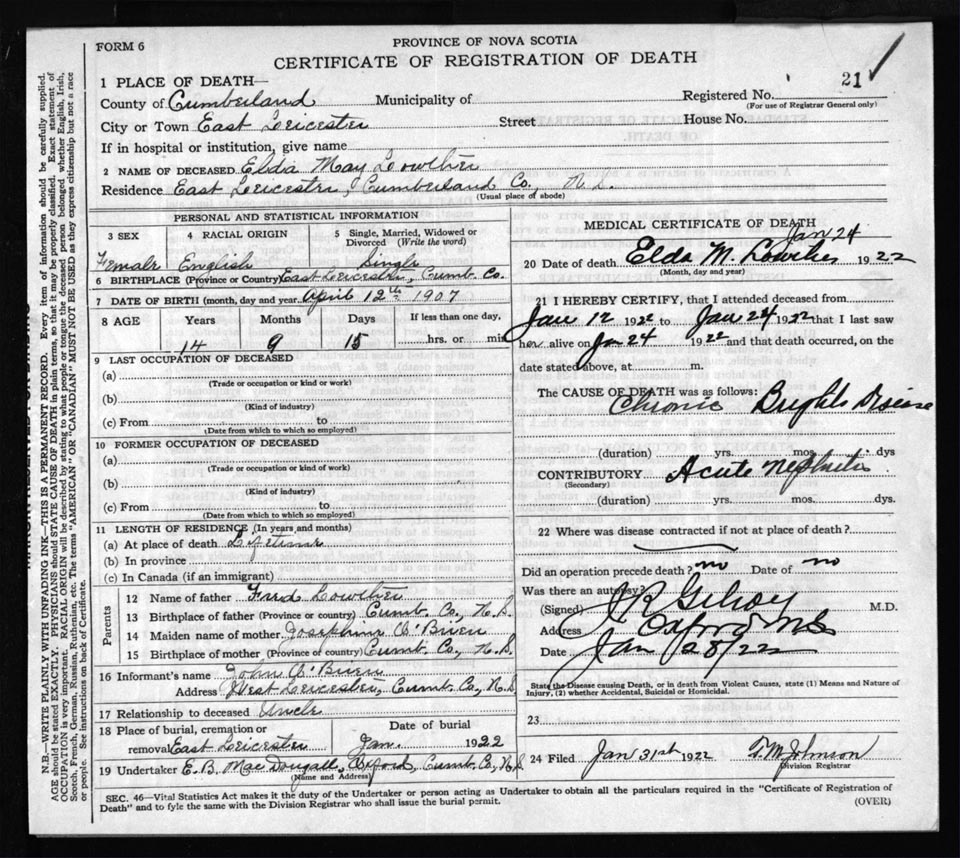 FORM 6
PROVINCE OF NOVA SCOTIA
CERTIFICATE OF REGISTRATION OF DEATH
21
1 PLACE OF DEATH—
County of Cumberland Municipality of
Registered No.
(For use of Registrar General only)
City or Town East Leicester Street House No.
If in hospital or institution, give name
2 NAME OF DECEASED Elda May Lowther
Residence East Leicester, Cumberland Co., N.S.
(Usual place of abode)
PERSONAL AND STATISTICAL INFORMATION
3 SEX 4 RACIAL ORIGIN 5 Single, Married, Widowed or Divorced (Write the word)
Female English Single
6 BIRTHPLACE (Province or Country) East Leicester, Cumb. Co.
7 DATE OF BIRTH (month, day and year) April 12th 1907
8 AGE Years Months Days If less than one day,
14 9 15 hrs. or min
9 LAST OCCUPATION OF DECEASED
(a)
(Trade or occupation or kind or work)
(b)
(Kind of industry)
(c) From to
(Date from which to which so employed)
10 FORMER OCCUPATION OF DECEASED
(a)
(Trade or occupation or kind of work)
(b)
(Kind of industry)
(c) From to
(Date from which to which so employed)
11 LENGTH OF RESIDENCE (In years and months)
(a) At place of death Lifetime
(b) In province
(c) In Canada (if an immigrant)
Parents
12 Name of father Lowther
13 Birthplace of father (Province or country) Cumb. Co., N.S.
14 Maiden name of mother Josephine O'Brien
15 Birthplace of mother (Province or country) Cumb. Co., N.S.
16 Informant's name John O'Brien
Address West Leicester, Cumb. Co., N.S.
17 Relationship to deceased Uncle
18 Place of burial, cremation or Date of burial
removal East Leicester Jan. 1922
19 Undertaker E. B. MacDougall, Oxford, Cumb. Co., N.S.
(Name and Address)
MEDICAL CERTIFICATE OF DEATH
Jan 24
20 Date of death Elda M. Lowther 1922
(Month, day and year)
21 I HEREBY CERTIFY, that I attended deceased from
Jan 12 1922 to Jan 24 1922 that I last saw
her alive on Jan 24 1922 and that death occurred, on the
date stated above, at m.
The CAUSE OF DEATH was as follows:
Chronic Brights Disease
(duration) yrs. mos. dys
CONTRIBUTORY Acute Nephritis
(Secondary)
(duration) yrs. mos. dys.
22 Where was disease contracted if not at place of death?
Did an operation precede death? no Date of no
Was there an autopsy?
(Signed) J R Gilroy M.D.
Address Oxford NS
Date Jan 28/22
State the Disease causing Death, or in death from Violent Causes, state (1) Means and Nature of
Injury, (2) whether Accidental, Suicidal or Homicidal.
23
24 Filed Jan 31st 1922 Johnson
Division Registrar
SEC. 46—Vital Statistics Act makes it the duty of the Undertaker or person acting as Undertaker to obtain all the particulars required in the "Certificate of Registration of
Death" and to fyle the same with the Division Registrar who shall issue the burial permit.
(OVER)
N.B.—WRITE PLAINLY WITH UNFADING INK—THIS IS A PERMANENT RECORD. Every item of information should be carefully supplied.
AGE should be stated EXACTLY. PHYSICIANS should STATE CAUSE OF DEATH in plain terms, so that it may be properly classified. Exact statement of
OCCUPATION is very important. RACIAL ORIGIN will be described by stating to what people or tongue the deceased person belonged, whether English, Irish,
Scotch, French, German, Russian, Ruthenian, etc. The terms "AMERICAN" OR "CANADIAN" MUST NOT BE USED as they express citizenship but not a race
or people. See instructions on back of Certificate.